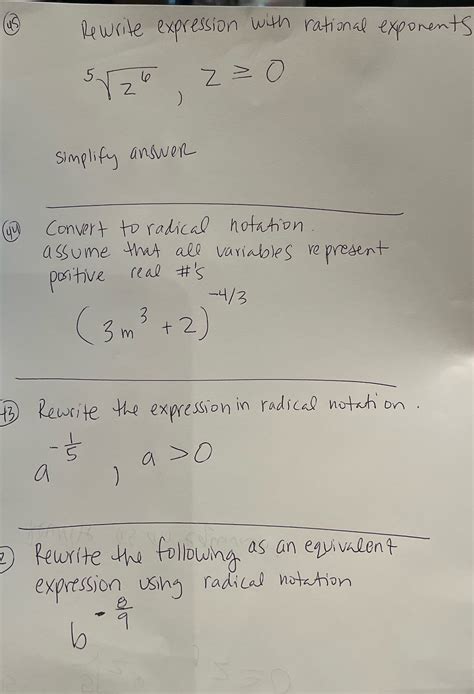 45 Rewrite expression with rational exponents
⁵√z⁶ , z ≥ 0
simplify answer
44 Convert to radical notation.
assume that all variables represent
positive real #'s
(3m³ + 2)^-4/3
43 Rewrite the expression in radical notation.
a^-1/5 , a > 0
Rewrite the following as an equivalent
expression using radical notation
b^-8/9